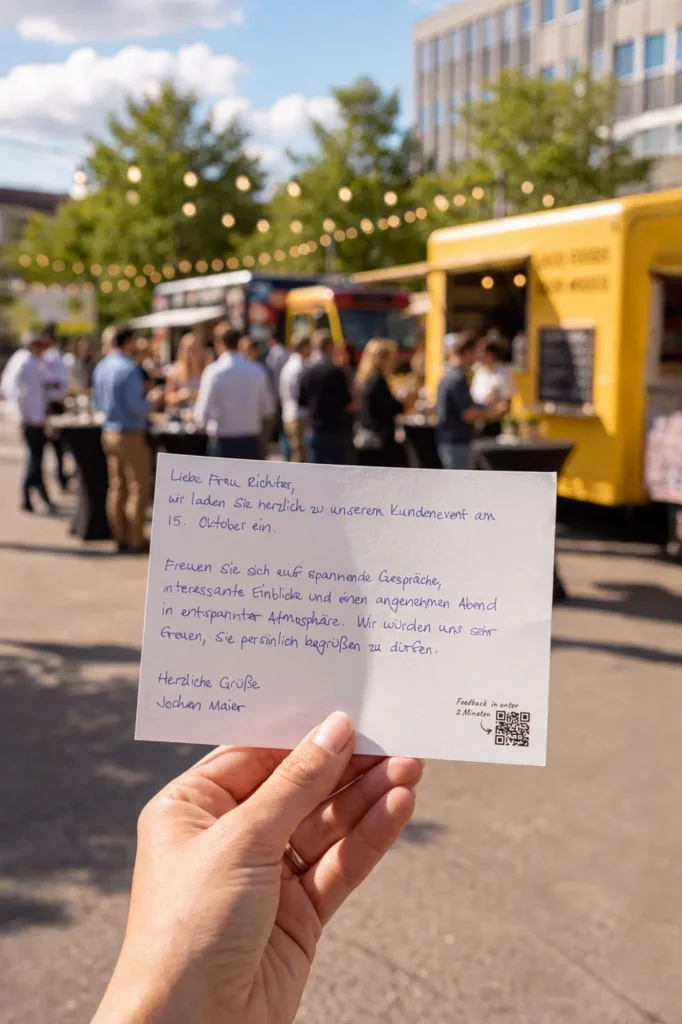 Liebe Frau Richter,
wir laden Sie herzlich zu unserem Kundenevent am
15. Oktober ein.
Freuen Sie sich auf spannende Gespräche,
interessante Einblicke und einen angenehmen Abend
in entspannter Atmosphäre. Wir würden uns sehr
freuen, Sie persönlich begrüßen zu dürfen.
Herzliche Grüße
Jochen Maier
Feedback in unter
2 Minuten